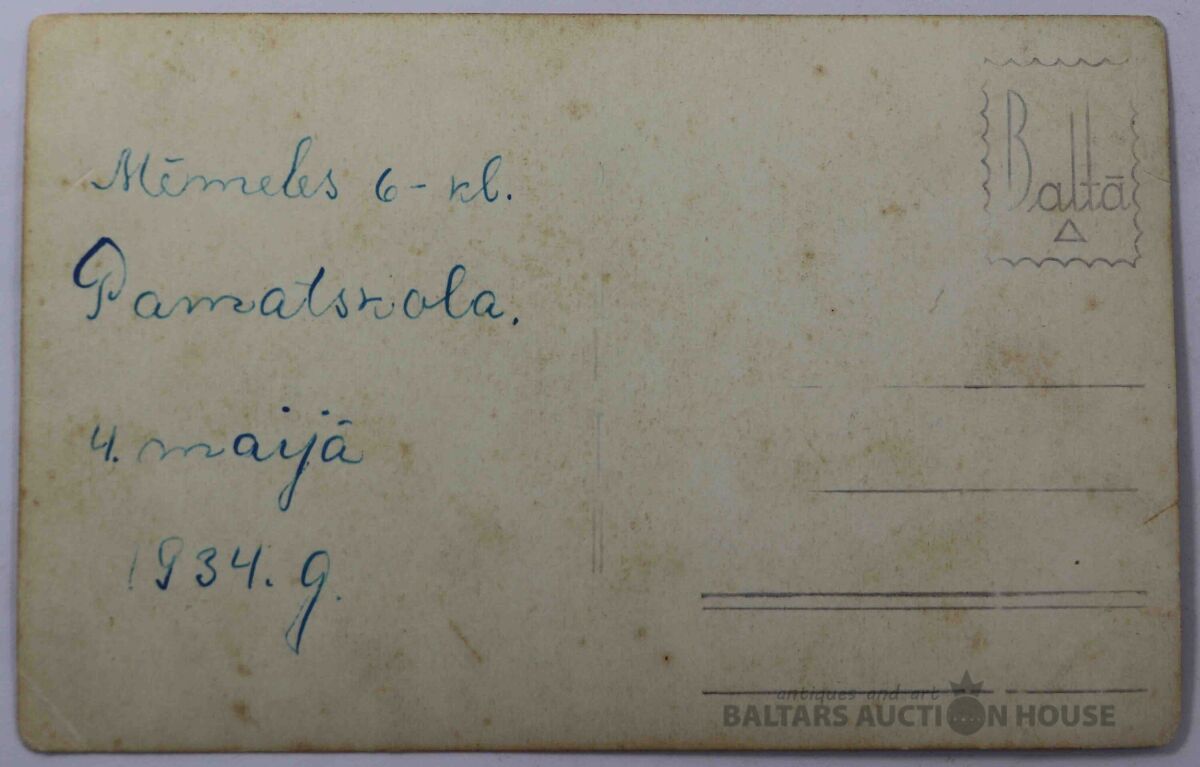 Mēmeles 6-kl.
Pamatskola.
4. maijā
1934. g.
Baltā
antiques and art
BALTARS AUCTION HOUSE